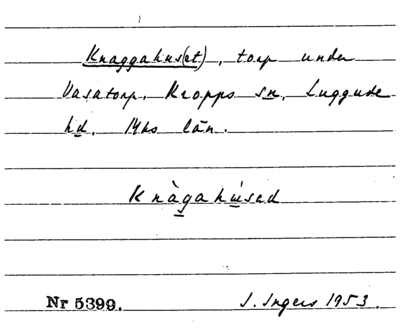 Knaggahus(et), torp under
Vasatorp. Kropps sn, Luggude
hd. Mhs län.
Knàgahúsed
Nr 5399. I. Ingers 1953.